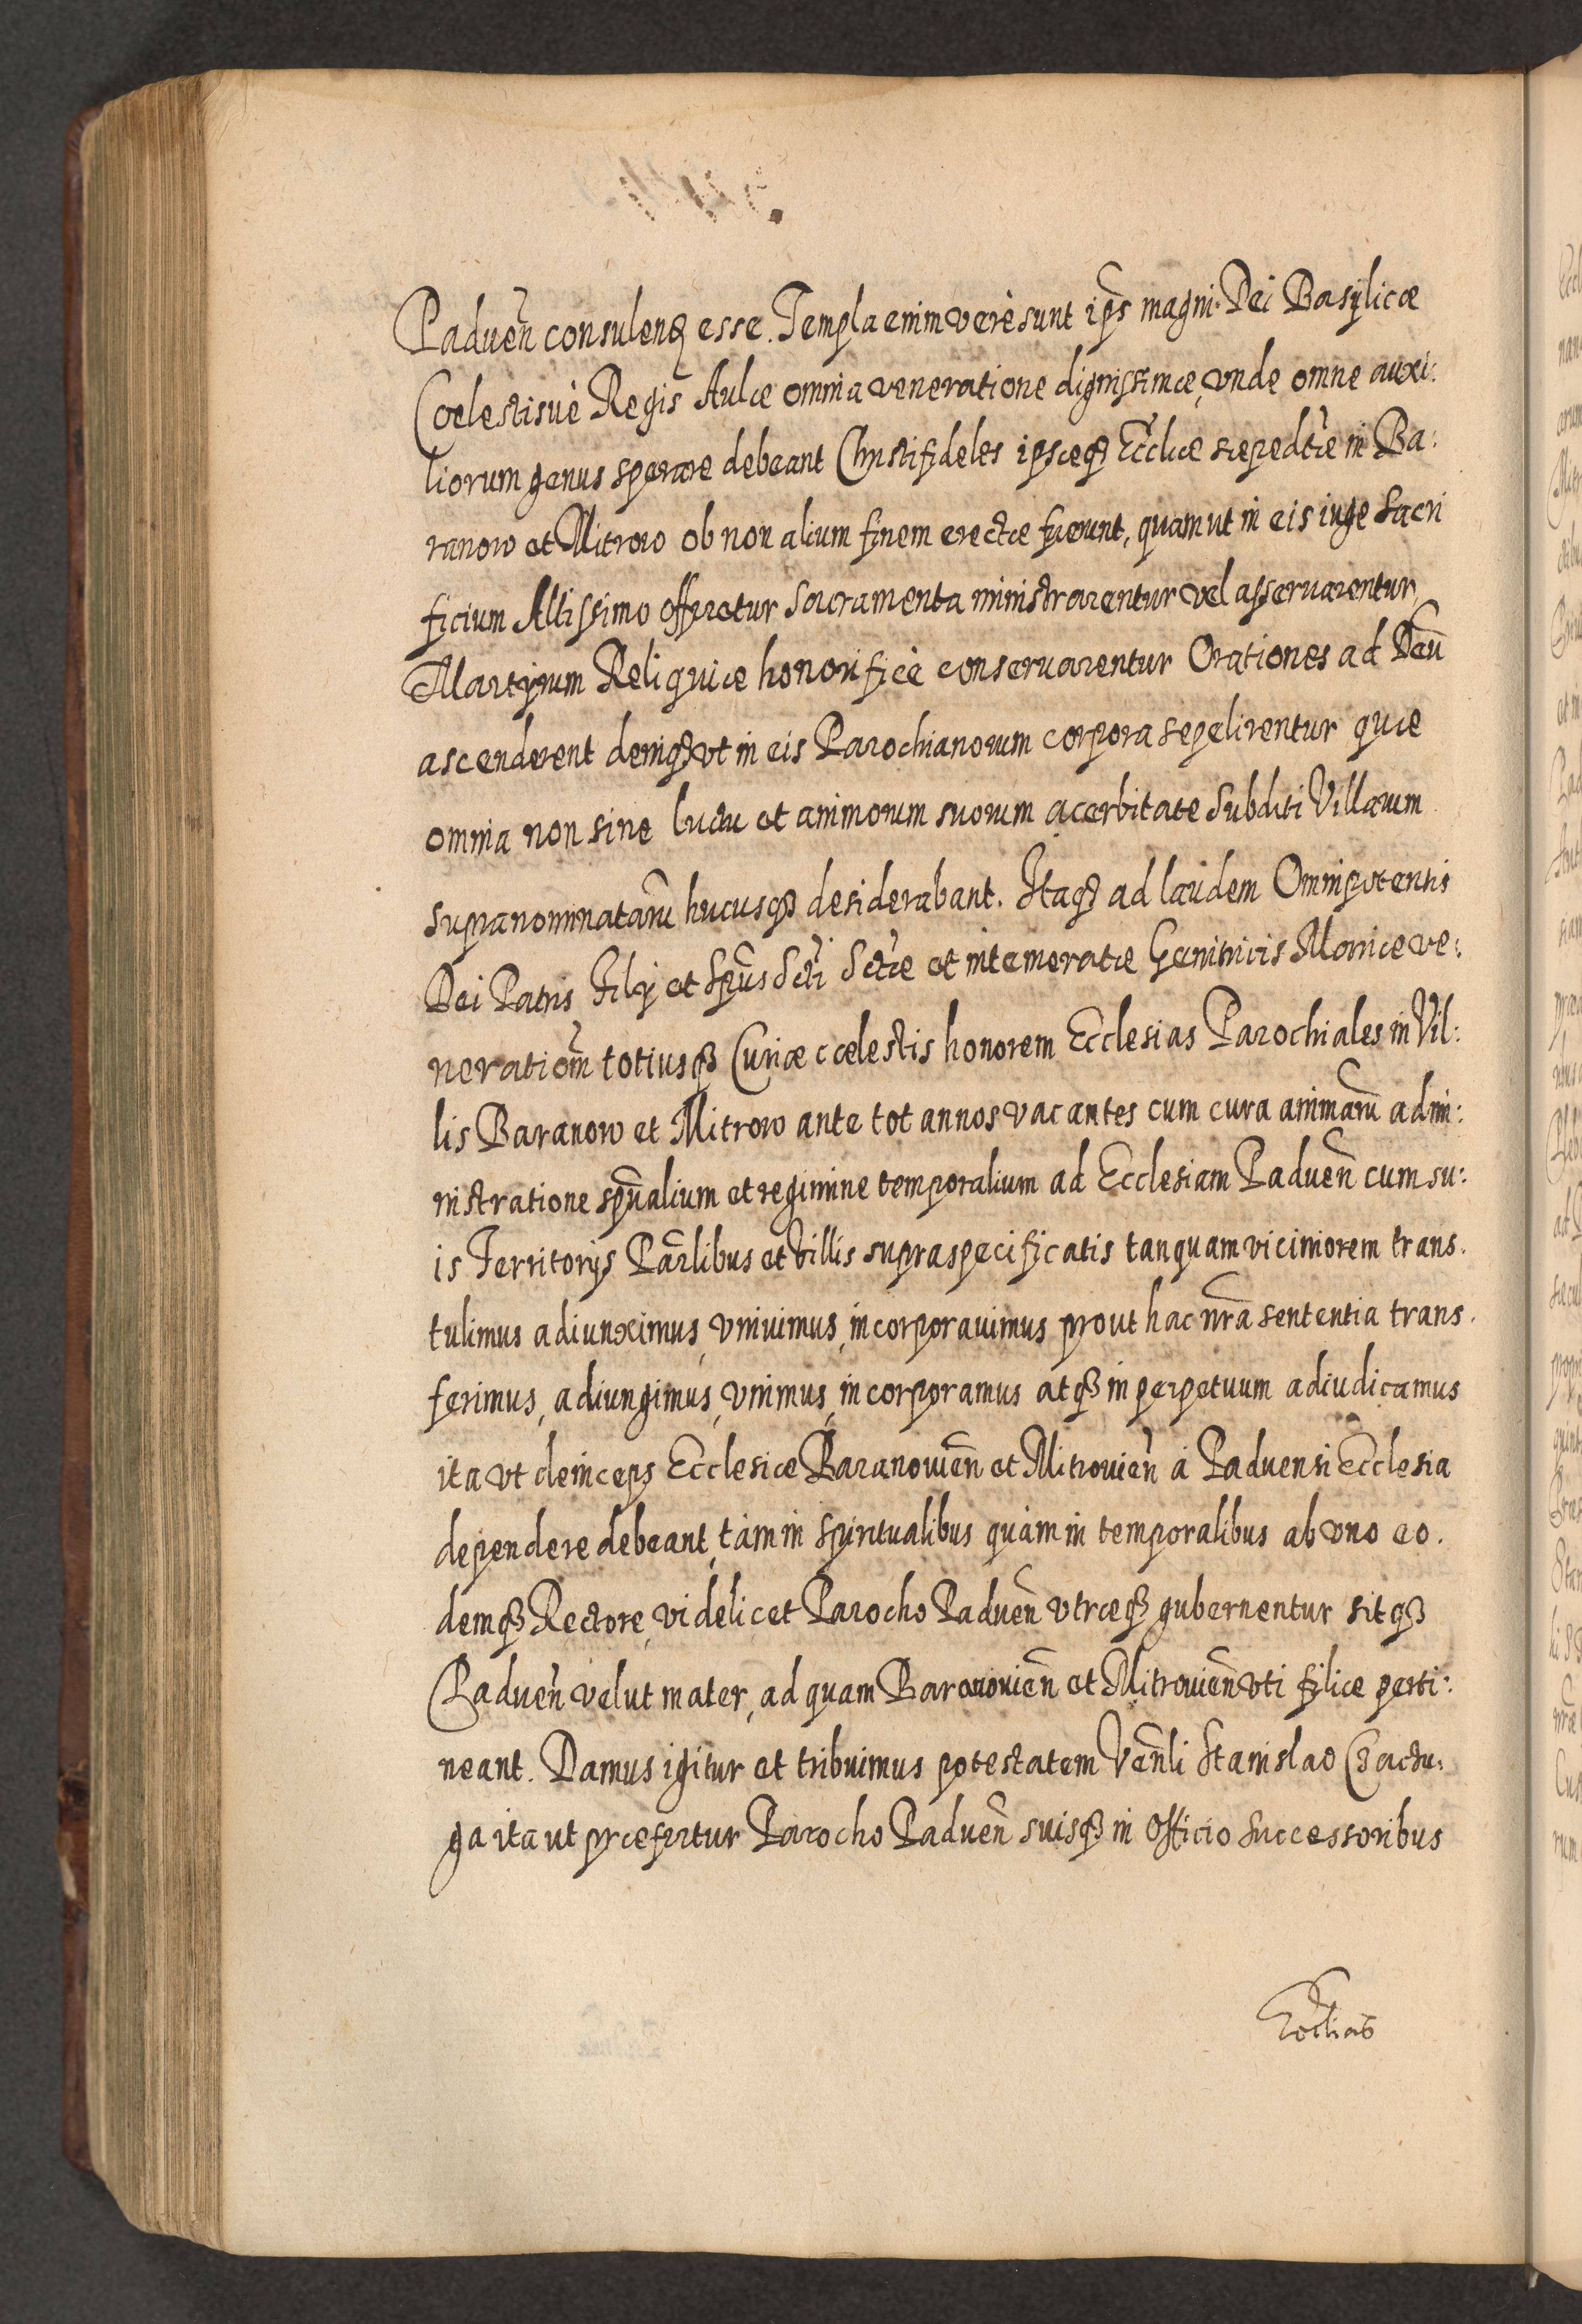 Paduen̄ consulenq̨ esse. Templa enim verè sunt ip̄s magni Dei Basylicæ
Coelestisuè Regis Aulæ omnia veneratione dignissimæ, vnde omne auxi:
liorum genus sperare debeant Christifideles ipsæq₃ Ecc̄læ sæpedc̄tæ in Ba:
ranow et Mitrow ob non alium finem erectæ fuerunt, quam ut in eis iuge Sacri
ficium Altissimo offerretur Sacramenta ministrarentur vel asseruarentur,
Martyrum Reliquiæ honorificè conseruarentur Orationes ad Deū
ascenderent deniq₃ vt in eis Parochianorum corpora sepelirentur quæ
omnia non sine luctu et animorum suorum acerbitate Subditi Villarum
supranominatarū hucusq₃ desiderabant. Itaq₃ ad laudem Omnipotentis
Dei Patris Filÿ et Spūs Sc̄ti Sc̄tæ et intemeratæ Genitricis Mariæ ve:
neratiōm totiusq₃ Curiæ cœlestis honorem Ecclesias Parochiales in Vil:
lis Baranow et Mitrow ante tot annos vacantes cum cura animarū admi:
nistratione spūalium et regimine temporalium ad Ecclesiam Paduen̄ cum su:
is Territorÿs Par̄libus et Villis supraspecificatis tanquam viciniorem trans.
tulimus adiunximus, vniuimus, incorporauimus prout hac nr̄a sententia trans.
ferimus, adiungimus, vnimus, incorporamus atq₃ in perpetuum adiudicamus
ita vt deinceps Ecclesiæ Baranouien̄ et Mitrouien̄ á Paduensi Ecclesia
dependere debeant, tàm in Spiritualibus quàm in temporalibus ab vno eo.
demq₃ Rectore, videlicet Parocho Paduen̄ vtræq₃ gubernentur sitq₃
Paduen̄ velut mater, ad quam Baranouien̄ et Mitrouien̄ vti filiæ perti:
neant. Damus igitur et tribuimus potestatem Ven̄li Stanislao Czactu:
ga ita ut præfertur Parocho Paduen̄ suisq₃ in Officio Successoribus